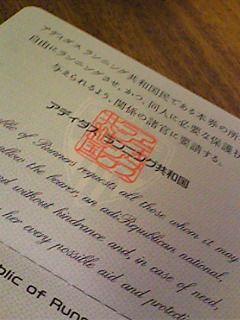 アディダス ランニング共和国民である本券の所
自由にランニングさせ、かつ、同人に必要な保護扶
与えられるよう、関係の諸官に要請する。
アディダス ランニング共和国
blic of Runners requests all those whom it may
allow the bearer, an adiRepublican national,
and without hindrance and, in case of need,
her every possible aid and protecti
blic of Runn